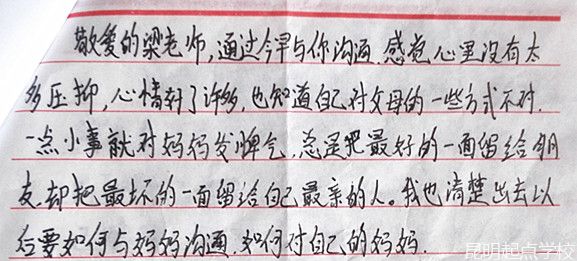 敬爱的梁老师,通过今早与你沟通,感觉心里没有太
多压抑,心情好了许多,也知道自己对父母的一些方式不对.
一点小事就对妈妈发脾气,总是把最好的一面留给朋
友,却把最坏的一面留给自己最亲的人。我也清楚出去以
后要如何与妈妈沟通.如何对自己的妈妈.
昆明起点学校